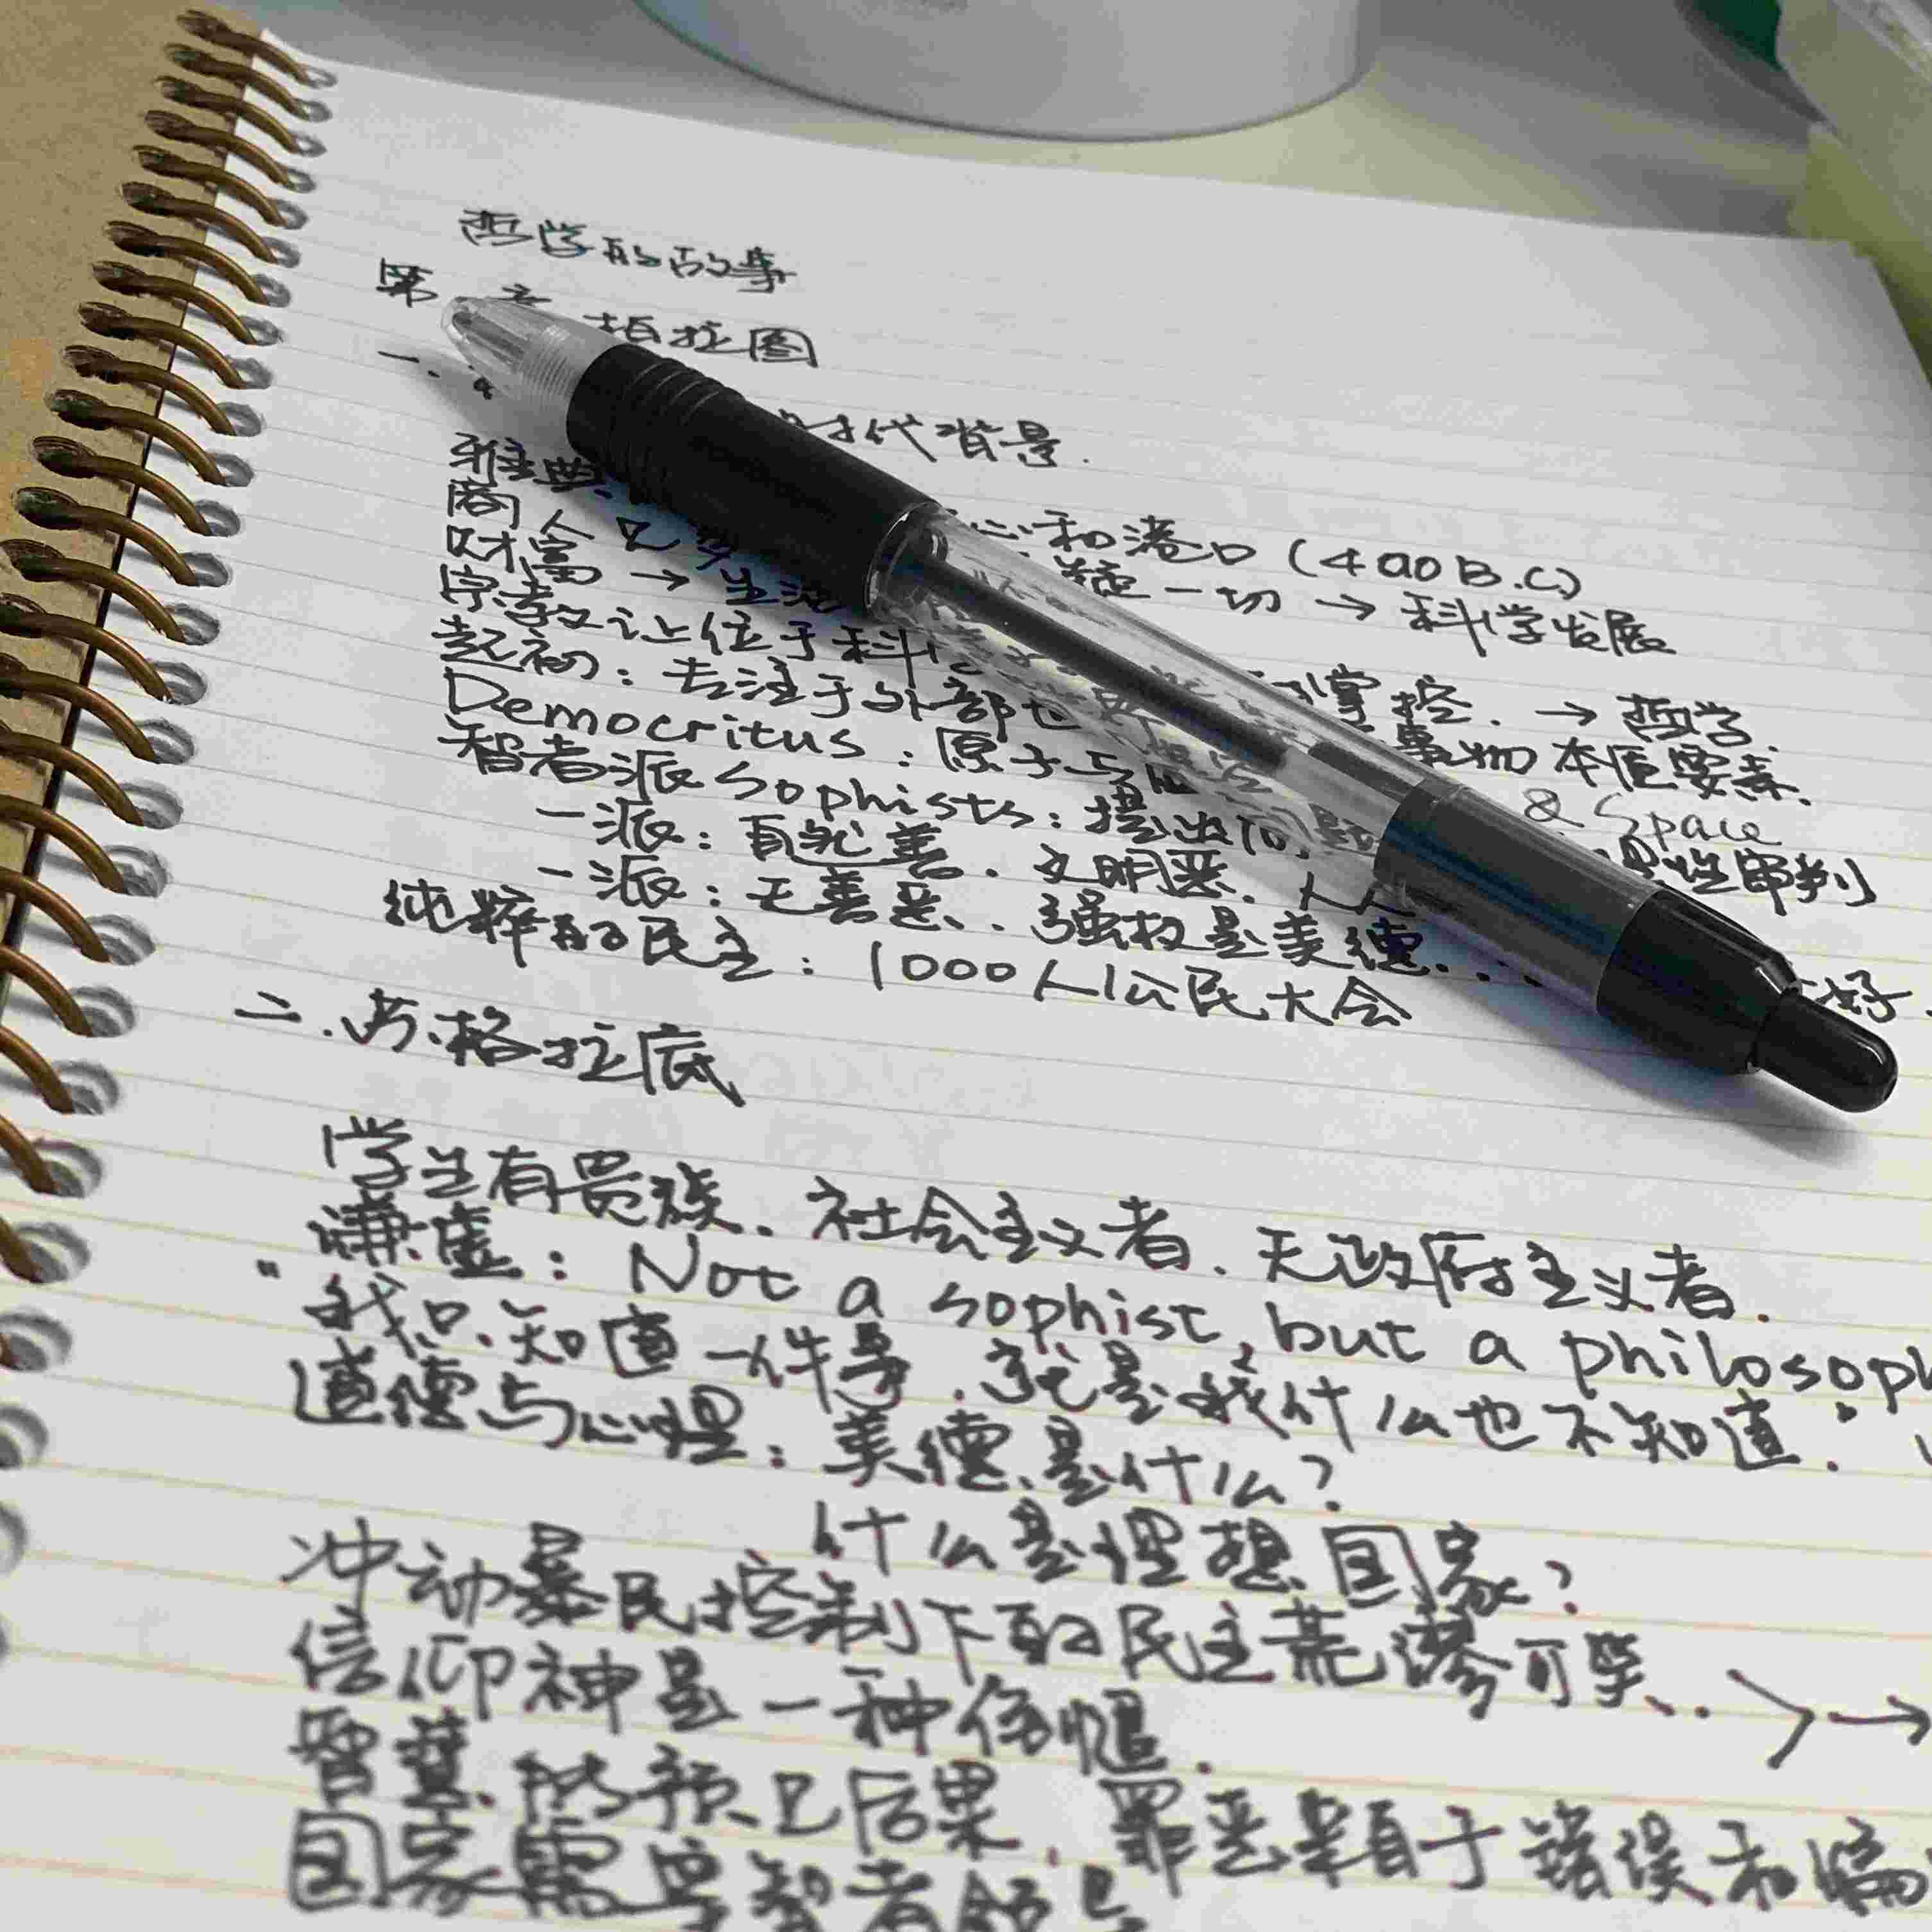 哲学的故事
第 章 柏拉图
一. 时代背景.
雅典 心和港口 (400 B.C)
商人见 一切 → 科学发展
财富 → 生活 掌控. → 哲学.
宗教让位于科学
起初: 专注于外部世界 事物本质要素.
Democritus: 原子与 & Space
智者派 Sophists: 提出 理性审判
一派: 自然善. 文明恶. 人人
一派: 无善恶. 强权是美德. 好.
纯粹的民主: 1000人公民大会
二. 苏格拉底
学生有贵族. 社会主义者. 无政府主义者.
谦虚: Not a sophist, but a philosoph
我只知道一件事. 就是我什么也不知道.
道德与心理: 美德是什么?
什么是理想国家?
冲动暴民控制下的民主荒谬可笑. →
信仰神是一种
智慧 预见后果. 罪恶来自于错误和偏
国家需要智者领导